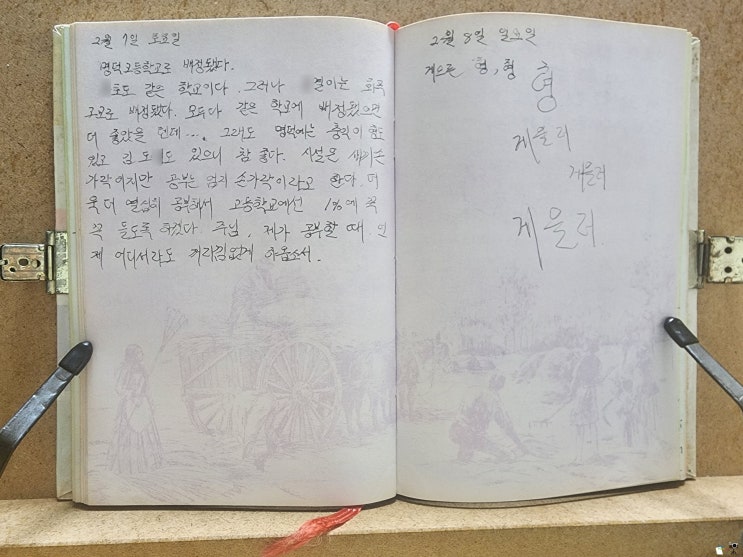 2월 7일 토요일
명덕고등학교로 배정됐다.
호도 같은 학교이다. 그러나 결이는 화곡
고로 배정됐다. 모두다 같은 학교에 배정됐으면
더 좋았을 텐데…. 그래도 명덕에는 충익이 형도
있고 김 도 도 있으니 참 좋다. 시설은 새끼손
가락이지만 공부는 엄지 손가락이라고 한다. 더
욱 더 열심히 공부해서 고등학교에선 1%에 꼭
꼭 들도록 하겠다. 주님, 제가 공부할 때 언
제 어디서라도 거리낌없게 하옵소서.
2월 8일 일요일
게으른 형, 형
형
게을러
게을러
게을러.